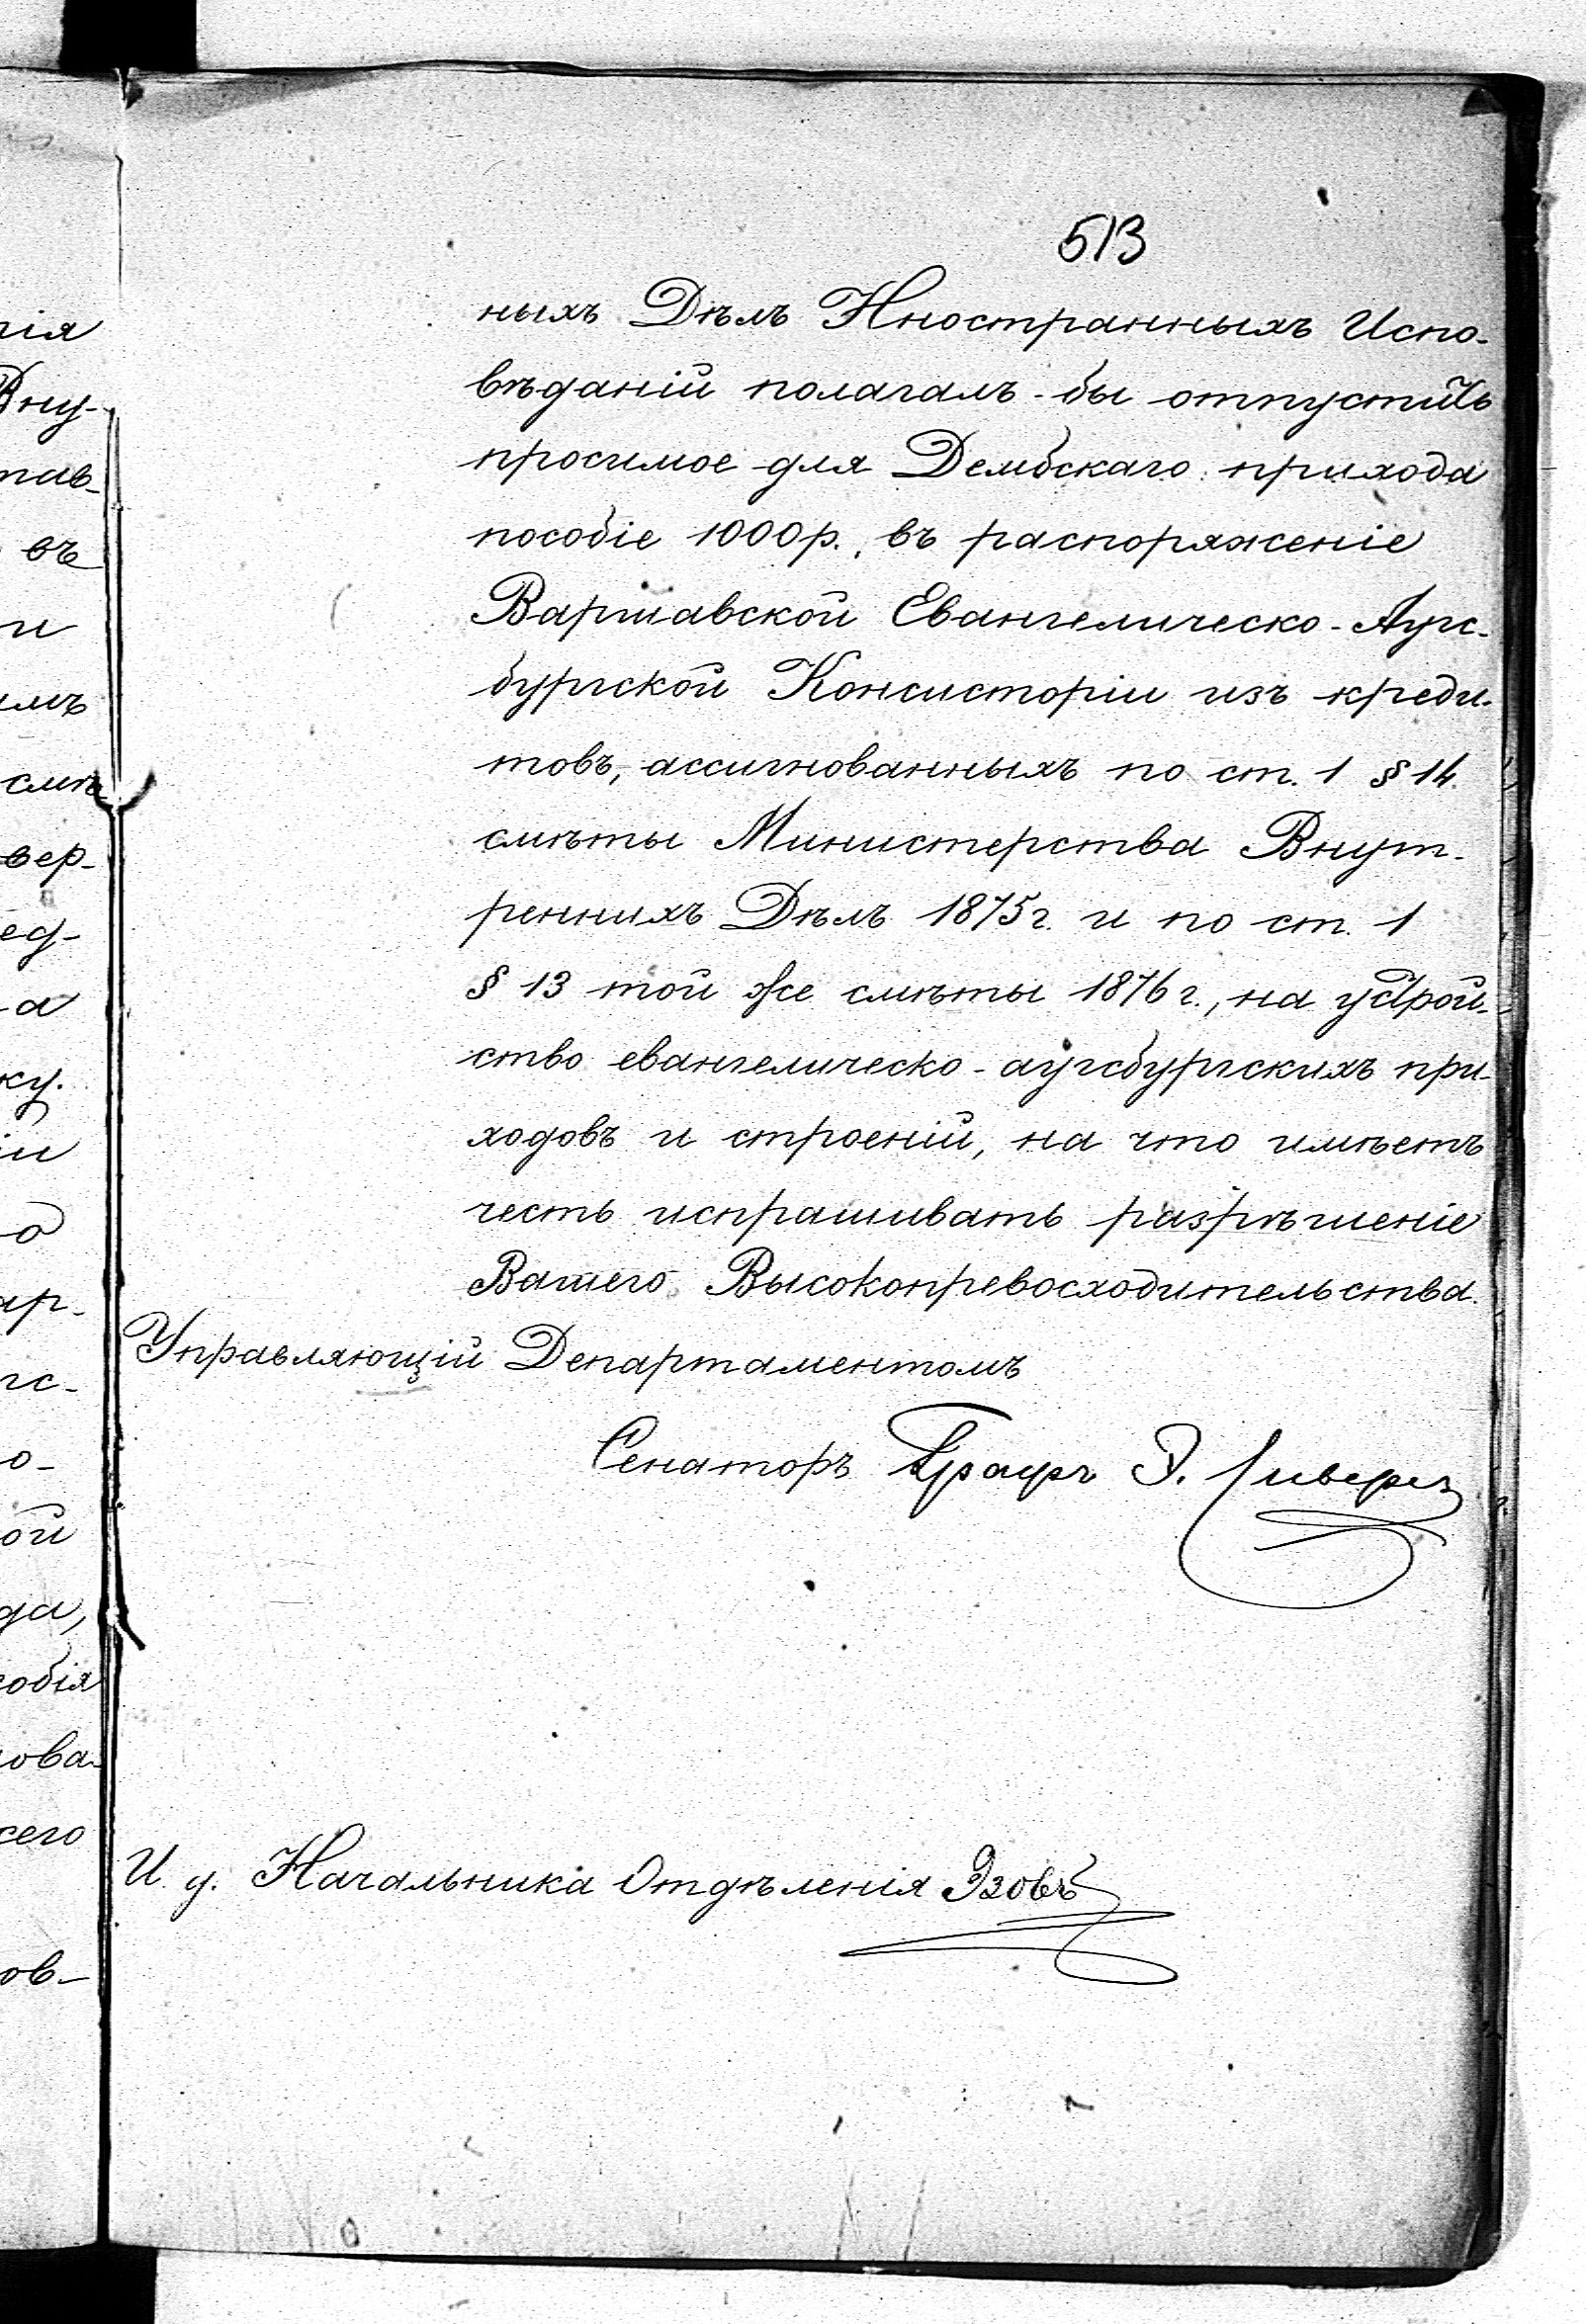 513
ныхъ Дѣлъ Иностранныхъ Испо-
вѣданій полагалъ-бы отпустить
просимое для Дембскаго прихода
пособіе 1000р., въ распоряженіе
Варшавской Евангелическо-Аугс-
бургской Консисторіи изъ креди-
товъ, ассигнованныхъ по ст. 1 § 14
смѣты Министерства Внут-
реннихъ Дѣлъ 1875г. и по ст. 1
§ 13 той же смѣты 1876 г., на устрой-
ство евангелическо-аугсбургскихъ при-
ходовъ и строеній, на что имѣетъ
честь испрашивать разрѣшеніе
Вашего Высокопревосходительства.
Управляющій Департаментомъ
Сенаторъ Графъ Э. Сиверсъ
И. д. Начальника Отдѣленія Эзовъ
нія
Вну-
въ
и
смѣ
вер-
ед-
а
ку.
іи
о
ар-
гс-
о-
ой
да,
собія
нова-
сего
ов-